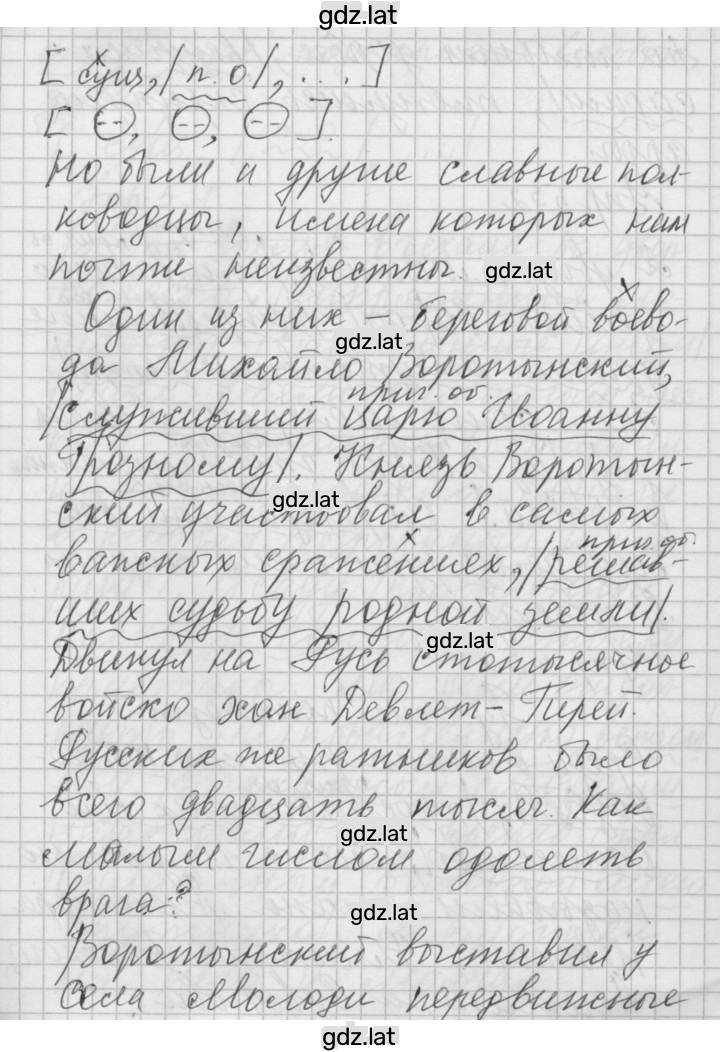 gdz.lat
[ сущ, /п. о/, ... ]
[ --, --, -- ].
Но были и другие славные пол-
ководцы, имена которых нам
почти неизвестны. gdz.lat
Один из них – береговой воево-
gdz.lat
да Михайло Воротынский,
прич. об.
/служивший царю Иоанну
Грозному/. Князь Воротын-
gdz.lat
ский участвовал в самых
прич. об.
важных сражениях, /решав-
ших судьбу родной земли/.
gdz.lat
Двинул на Русь стотысячное
войско хан Девлет-Гирей.
Русских же ратников было
всего двадцать тысяч. Как
gdz.lat
малым числом одолеть
врага?
gdz.lat
Воротынский выставил у
села Молоди передвижные
gdz.lat